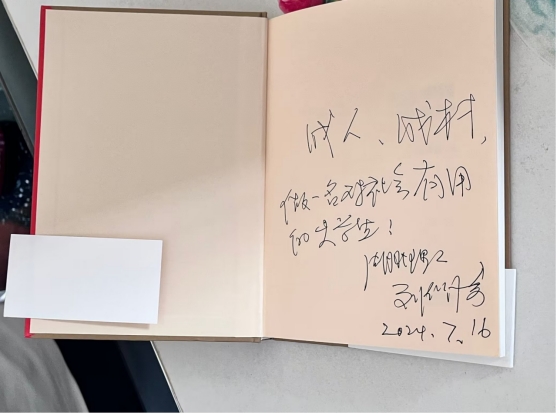 成人、成材,
做一名对社会有用
的大学生!
2024.7.16